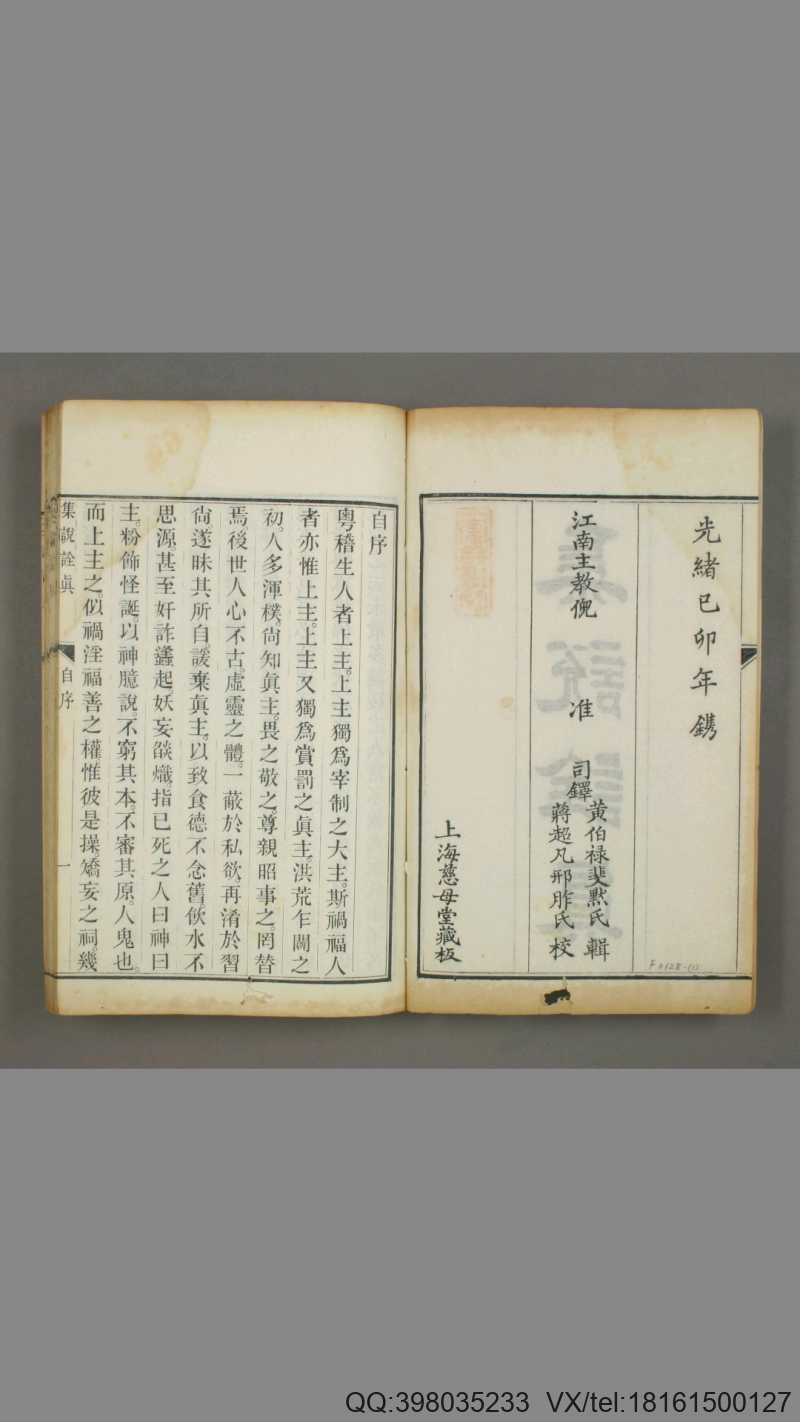 光緒己卯年鐫
江南主教倪
准
司鐸
黃伯禄斐默氏 輯
蔣超凡邢胙氏 校
上海慈母堂藏板
自序
粵稽生人者上主。上主獨爲宰制之大主。斯禍福人
者亦惟上主。上主又獨爲賞罰之眞主。洪荒乍闢之
初。人多渾樸。尙知眞主。畏之敬之。尊親昭事之。罔替
焉。後世人心不古。虛靈之體。一蔽於私欲。再淆於習
尙。遂昧其所自。諼棄眞主。以致食德不念舊。飮水不
思源。甚至奸詐蠭起。妖妄燄熾。指已死之人曰神曰
主。粉飾怪誕。以神臆說。不窮其本。不審其原。人鬼也。
而上主之。似禍淫福善之權。惟彼是操。矯妄之祠。幾
集說詮眞
自序
一
F 0128-(1)
QQ:398035233 VX/tel:18161500127